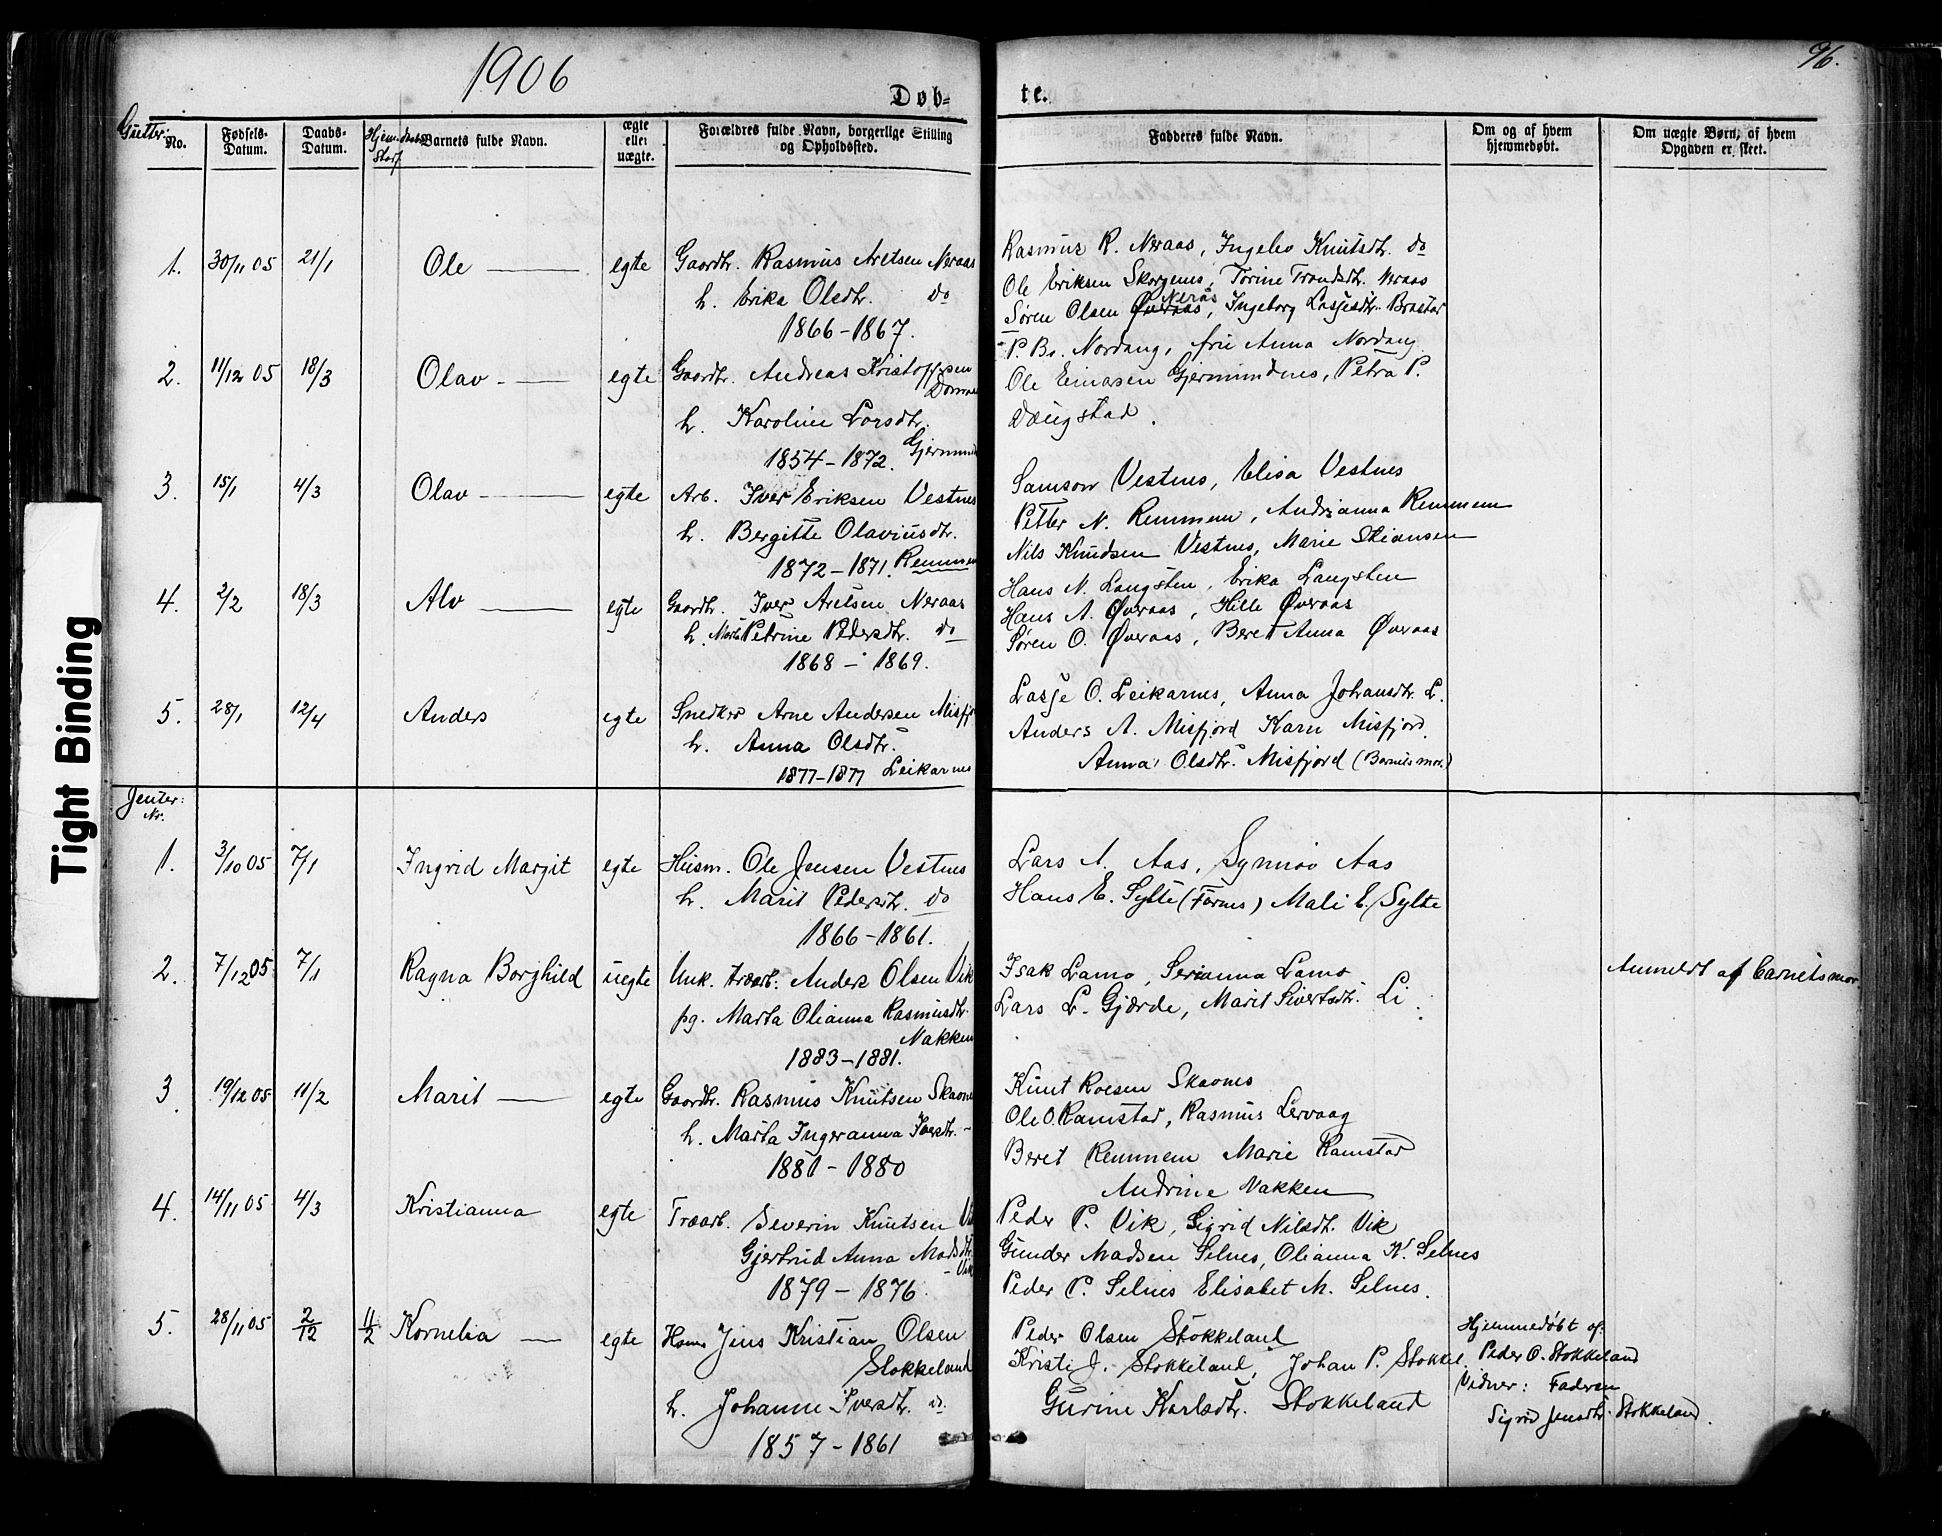 1906
96.
Døb-
te.
Gutter:
No.
Fødsels-
Datum.
Daabs-
Datum.
Barnets fulde Navn.
ægte
eller
uægte.
Forældres fulde Navn, borgerlige Stilling
og Opholdssted.
Fadderes fulde Navn.
Om og af hvem
hjemmedøbt.
Om uægte Børn, af hvem
Opgaven er skeet.
1. 30/11 05 21/1 Ole egte Gaardbr. Rasmus Aretsen Neraas
h. Erika Olsdtr. do
1866-1867.
Rasmus R. Neraas, Ingelev Knutsdtr. do
Ole Eriksen Skorgenes, Torine Trondsdtr. Neraas
Neras
Søren Olsen Øvraas, Ingeborg Lasjesdtr. Brastad
2. 11/12 05 18/3 Olav egte Gaardbr. Andreas Kristoffersen
h. Karoline Larsdtr.
1854-1872. Gjermund
P. Br. Nordang, fru Anna Nordang
Ole Einarsen Gjermundnes, Petra P.
Daugstad.
3. 15/1 4/3 Olav egte Arb. Iver Eriksen Vestnes
h. Bergitte Olaviusdtr.
1872-1871. Remmem
Samson Vestnes, Elisa Vestnes
Petter N. Remmem, Andrianna Remmem
Nils Knudsen Vestnes, Marie Stiansen
4. 2/2 18/3 Alv egte Gaardbr. Iver Aretsen Neraas
h. Marta Petrine Pedersdtr. do
1868-1869.
Hans N. Langsten, Erika Langsten
Hans A. Øvraas, Hille Øvraas
Søren O. Øvraas, Beret Anna Øvraas
5. 28/1 12/4 Anders egte Snedker Arne Andersen Misfjo
h. Anna Olsdtr.
1877-1877 Leikarnes
Lasje O. Leikarnes, Anna Johansdtr. L.
Anders A. Misfjord Karn Misfjord.
Anna Olsdtr. Misfjord (Barnets mor.)
Jenter:
Nr.
1. 3/10 05 7/1 Ingrid Margit egte Husm. Ole Jensen Vestnes
h. Marit Pedersdtr. do
1866-1861.
Lars A. Aas, Synnøv Aas
Hans E. Sylte (Furnes) Mali E. Sylte
2. 7/12 05 7/1 Ragna Borghild uegte Unk. træarb. Anders Olsen Vik
pg. Marta Olianna Rasmusdtr.
Nakken
1883-1881.
Isak Lamo, Serianna Lamo
Lars L. Gjærde, Marit Sivertsdtr. Li
Anmeldt af barnets mor
3 19/12 05 11/2 Marit egte Gaardbr. Rasmus Knutsen Skaones
h. Marta Ingeranna Iversdtr.
1881-1880
Knut Roesen Skaones
Ole O. Ramstad, Rasmus Lervaag
Beret Remmem Marie Ramstad
Andrine Nakken
4. 14/11 05 4/3 Kristianna egte Træarb. Severin Knutsen Vi
Gjertrud Anna Madsdtr.
Vik
1879-1876.
Peder P. Vik, Sigrid Nilsdtr. Vik
Gunder Madsen Selnes, Olianna K. Selnes
Peder P. Selnes Elisabet M. Selnes.
5. 28/11 05 2/12 11/2 Kornelia egte Husm Jens Kristian Olsen
Stokkeland
h. Johanne Iversdtr. do.
1857-1861
Peder Olsen Stokkeland
Kristi J. Stokkeland, Johan P. Stokkel.
Gurine Karlsdtr. Stokkeland
Hjemmedøbt af:
Peder O. Stokkeland
Vidner: Faderen
Sigrid Jensdtr. Stokkeland.
Tight Binding